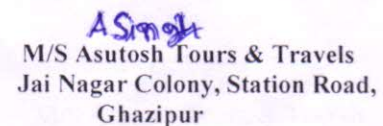 A Singh
M/S Asutosh Tours & Travels
Jai Nagar Colony, Station Road,
Ghazipur